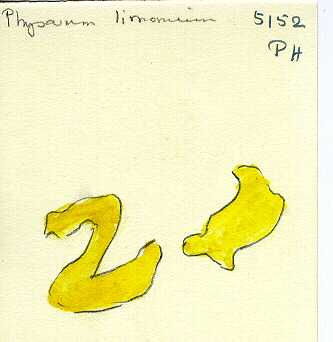 Physarum limonium 5152
PH